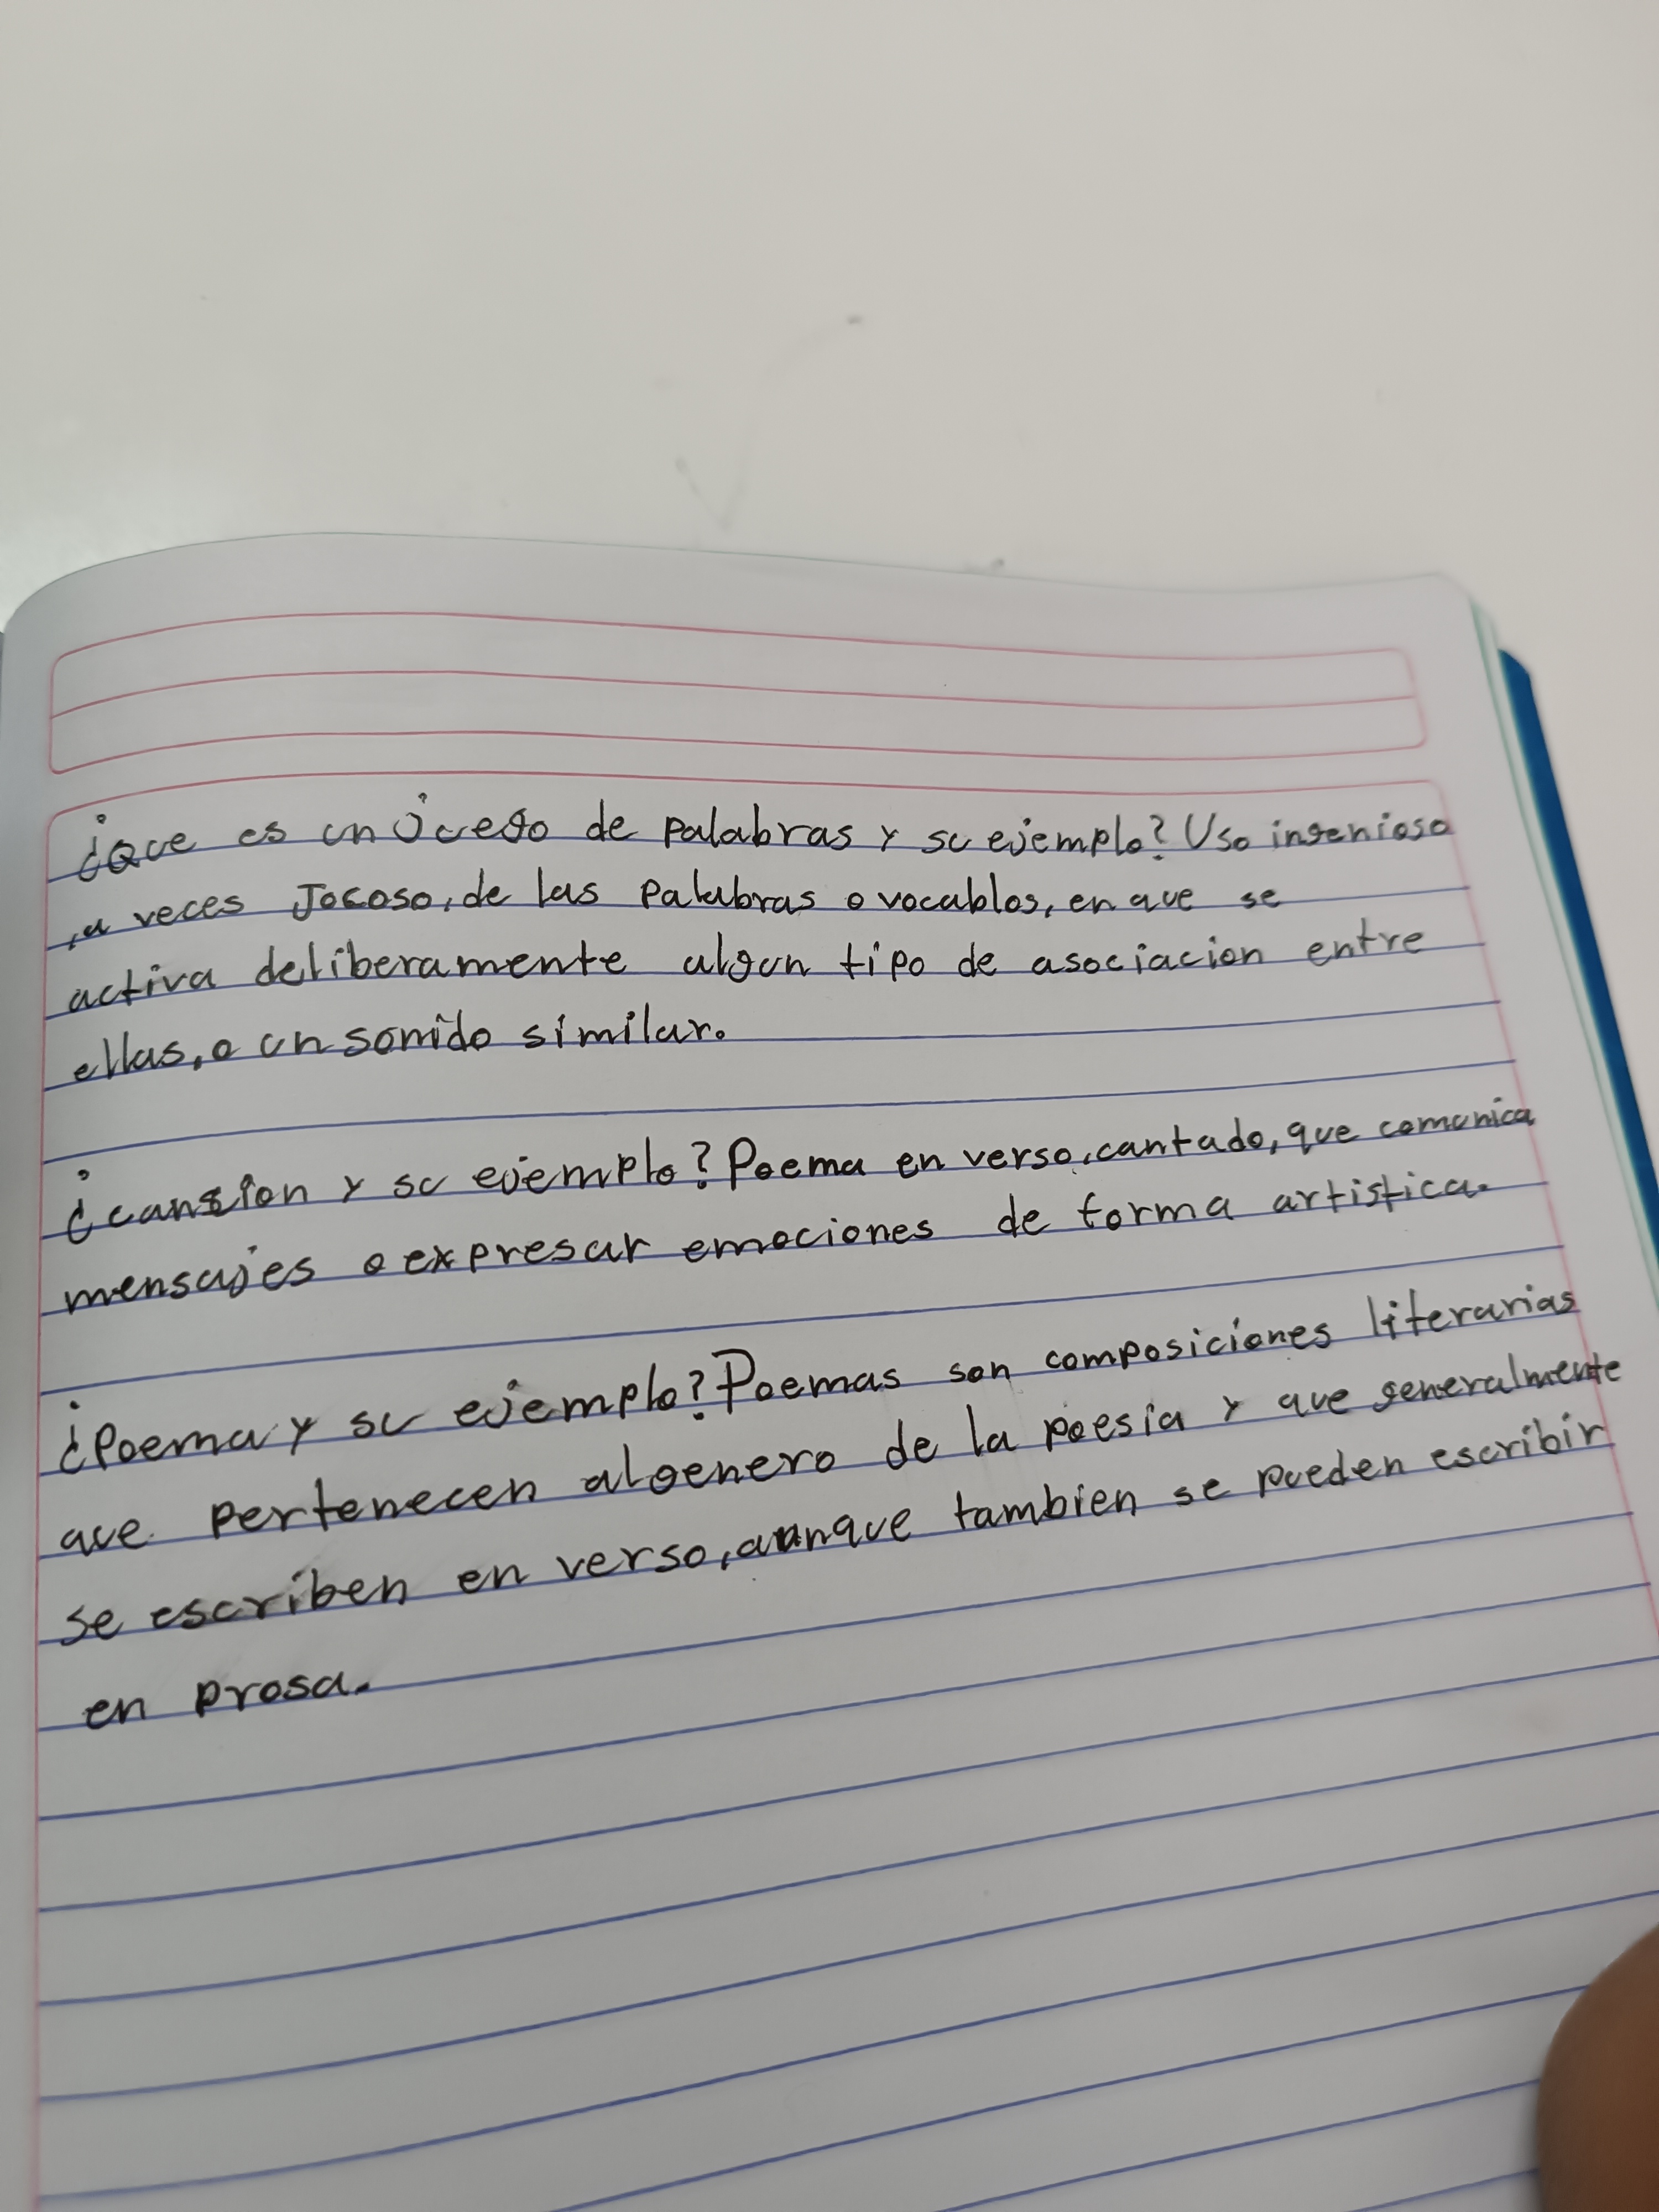 ¿Que es un juego de palabras y su ejemplo? Uso ingenioso
,a veces Jocoso, de las palabras o vocablos, en que se
activa deliberamente algun tipo de asociacion entre
ellas, o un sonido similar.
¿cansion y su ejemplo? Poema en verso, cantado, que comunica
mensajes o expresar emociones de forma artistica.
¿Poema y su ejemplo? Poemas son composiciones literarias
que pertenecen al genero de la poesia y que generalmente
se escriben en verso, aunque tambien se pueden escribir
en prosa.